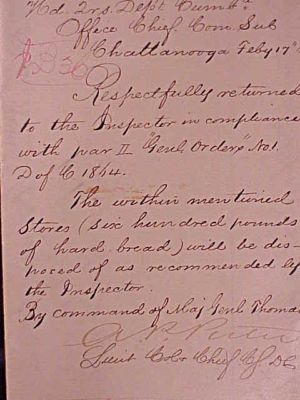 Hd. Qrs. Dept Cumbd.
Office Chief Com Sub
Chattanooga Feby 17"
Respectfully returned
to the Inspector in compliance
with par II "Genl Orders" No. 1.
D of C 1864.
The within mentioned
Stores (six hundred pounds
of hard bread) will be dis-
posed of as recommended by
the Inspector.
By command of Maj Genl Thomas
Lieut Col & Chief CS DC